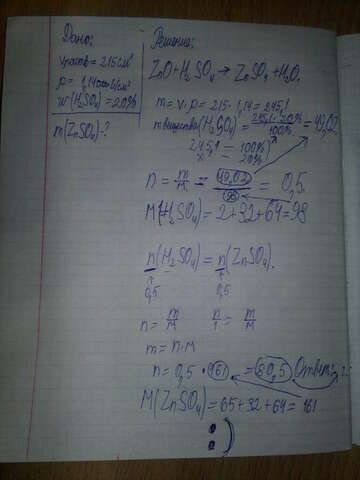 Дано:
Vраств = 215 см³
ρ = 1,14 г/см³
w(H₂SO₄) = 20%
m(ZnSO₄) - ?
Решение:
ZnO + H₂SO₄ → ZnSO₄ + H₂O.
m = v · ρ = 215 · 1,14 = 245,1
m вещества (H₂SO₄) = 245,1 · 20% / 100% = 49,02
245,1 = 100%
x = 20%
n = m/M = 49,02/98 = 0,5.
M(H₂SO₄) = 2 + 32 + 64 = 98
n(H₂SO₄) = n(ZnSO₄).
0,5 0,5
n = m/M n/1 = m/M
m = n · M
n = 0,5 · 161 = 80,5 Ответ:
M(ZnSO₄) = 65 + 32 + 64 = 161
:)